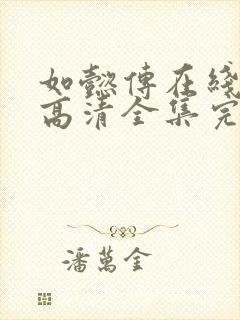 如懿傳在綫
高清全集完
潘萬金